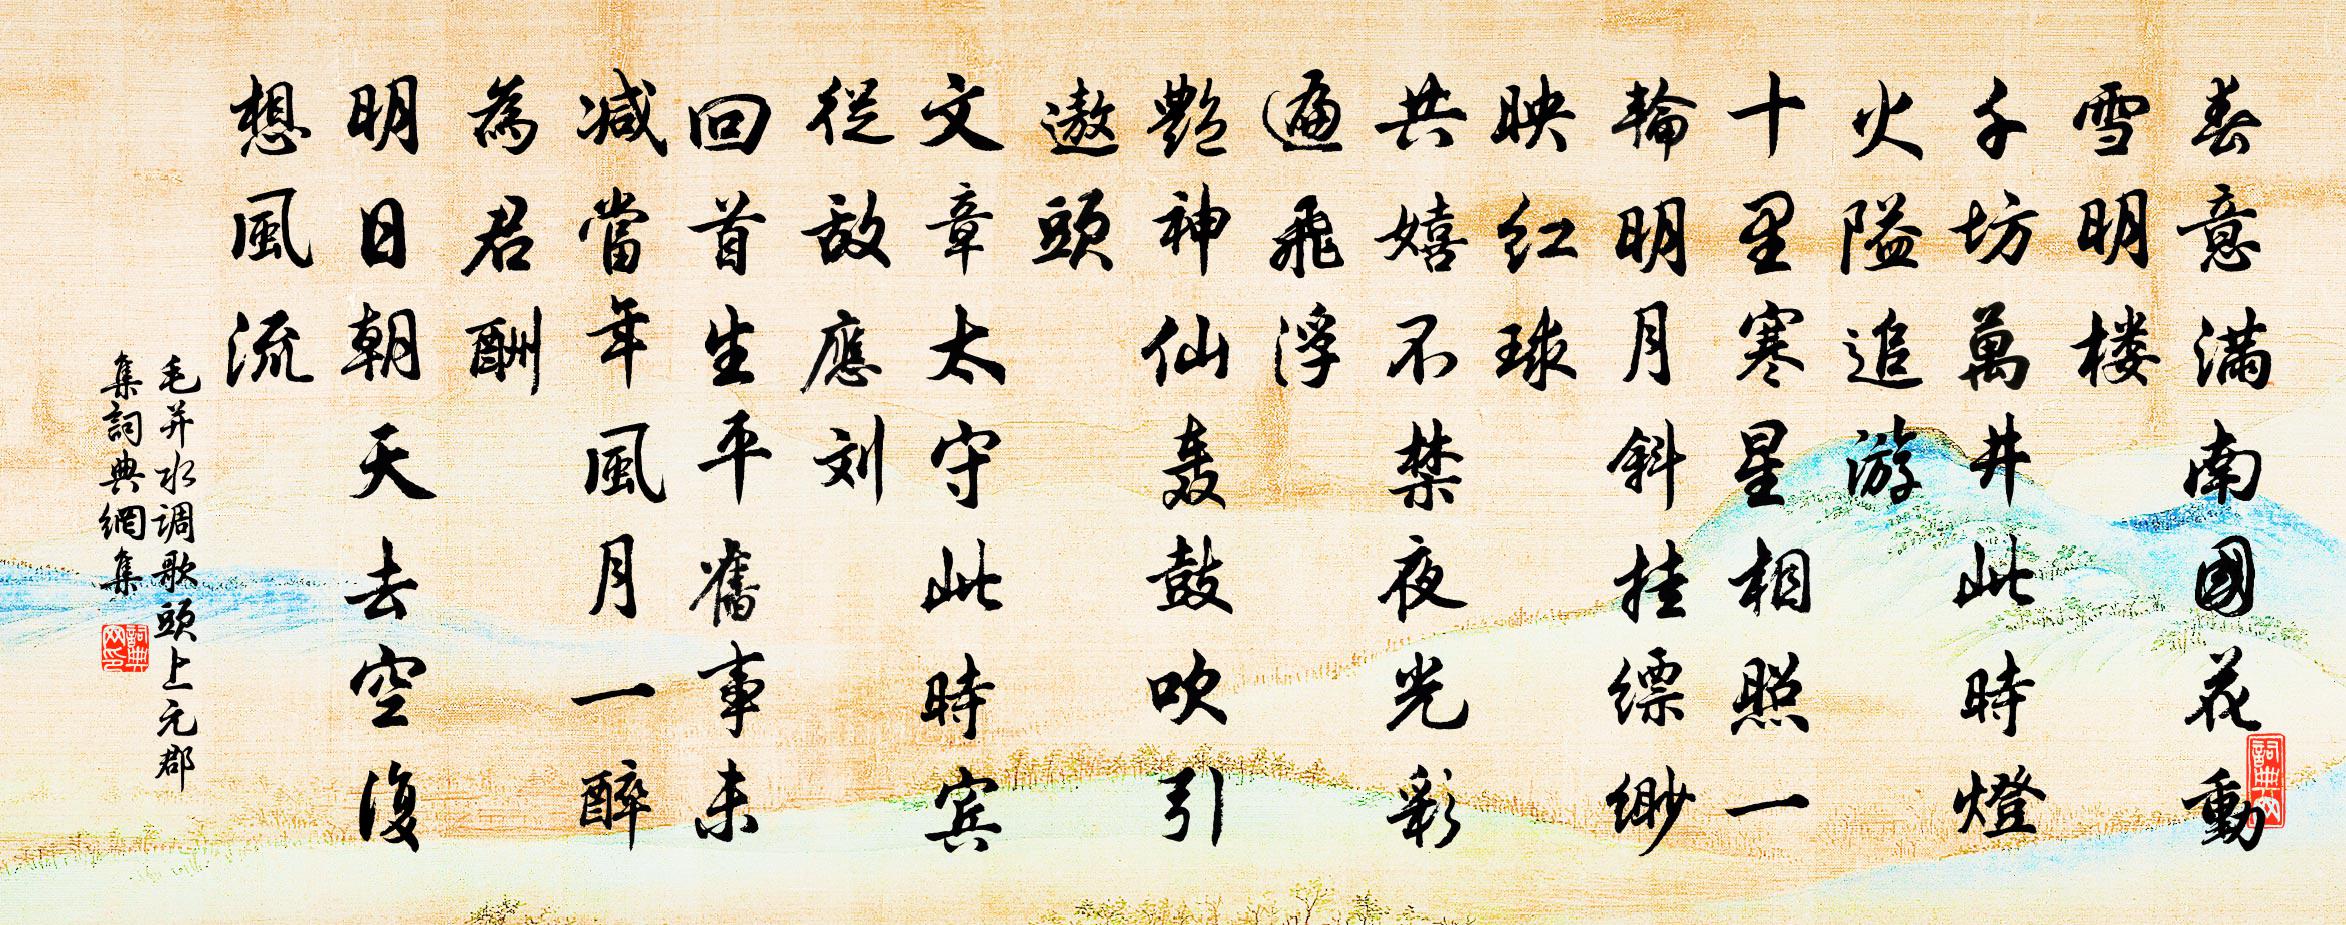 春意满南國花動
雪明楼
千坊萬井此時燈
火隘追游
十里寒星相照一
輪明月斜挂缥緲
映红球
共嬉不禁夜光彩
遍飛浮
艷神仙轰鼓吹引
遨頭
文章太守此時宾
從敌應刘
回首生平舊事未
减當年風月一醉
為君酬
明日朝天去空復
想風流
毛并水调歌頭上元郡
集詞典網集
詞典网
詞典网印